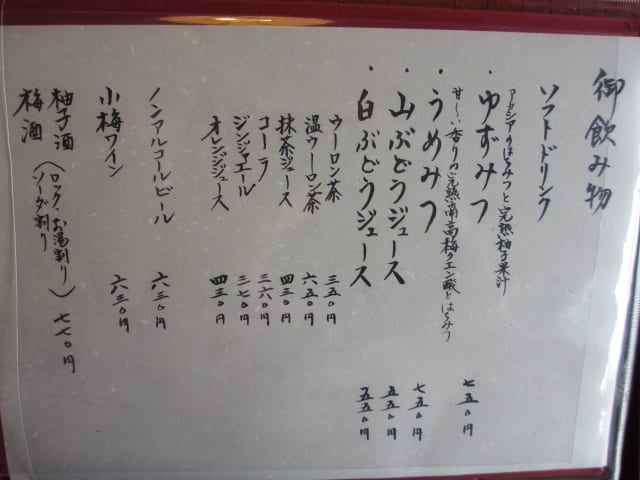 御飲み物
ソフトドリンク
・ゆずみつ 七五〇円
アカシアのはちみつと完熟柚子果汁
・うめみつ 七五〇円
甘〜い香りの完熟南高梅クエン酸とはちみつ
・山ぶどうジュース 五五〇円
・白ぶどうジュース 五五〇円
ウーロン茶 三五〇円
温ウーロン茶 六五〇円
抹茶ジュース 四三〇円
コーラ 三六〇円
ジンジャエール 三七〇円
オレンジジュース 四三〇円
ノンアルコールビール 六三〇円
小梅ワイン 六三〇円
柚子酒
梅酒
(ロック・お湯割り
ソーダ割り) 七七〇円